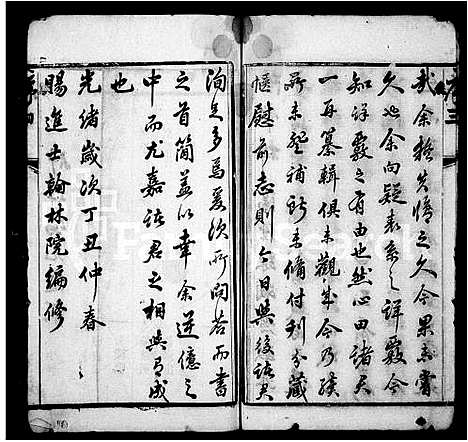 我余雖失悔之久今果未嘗
久也余向疑表系之詳覈今
知詳覈之有由也然心田諸君
一再纂輯俱未觀成今乃續
所未登補所未備付刊分藏
慰前志則今日與後諸君
洵足多焉爰須所問若而書
之首簡蓋以幸余逆億之
中而尤嘉諸君之相與有成
也
光緒歲次丁丑仲春
賜進士翰林院編修
序四